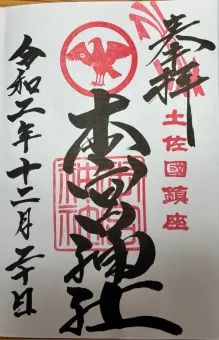 奉拝
土佐國鎮座
本宮神社
令和二年十二月二十日